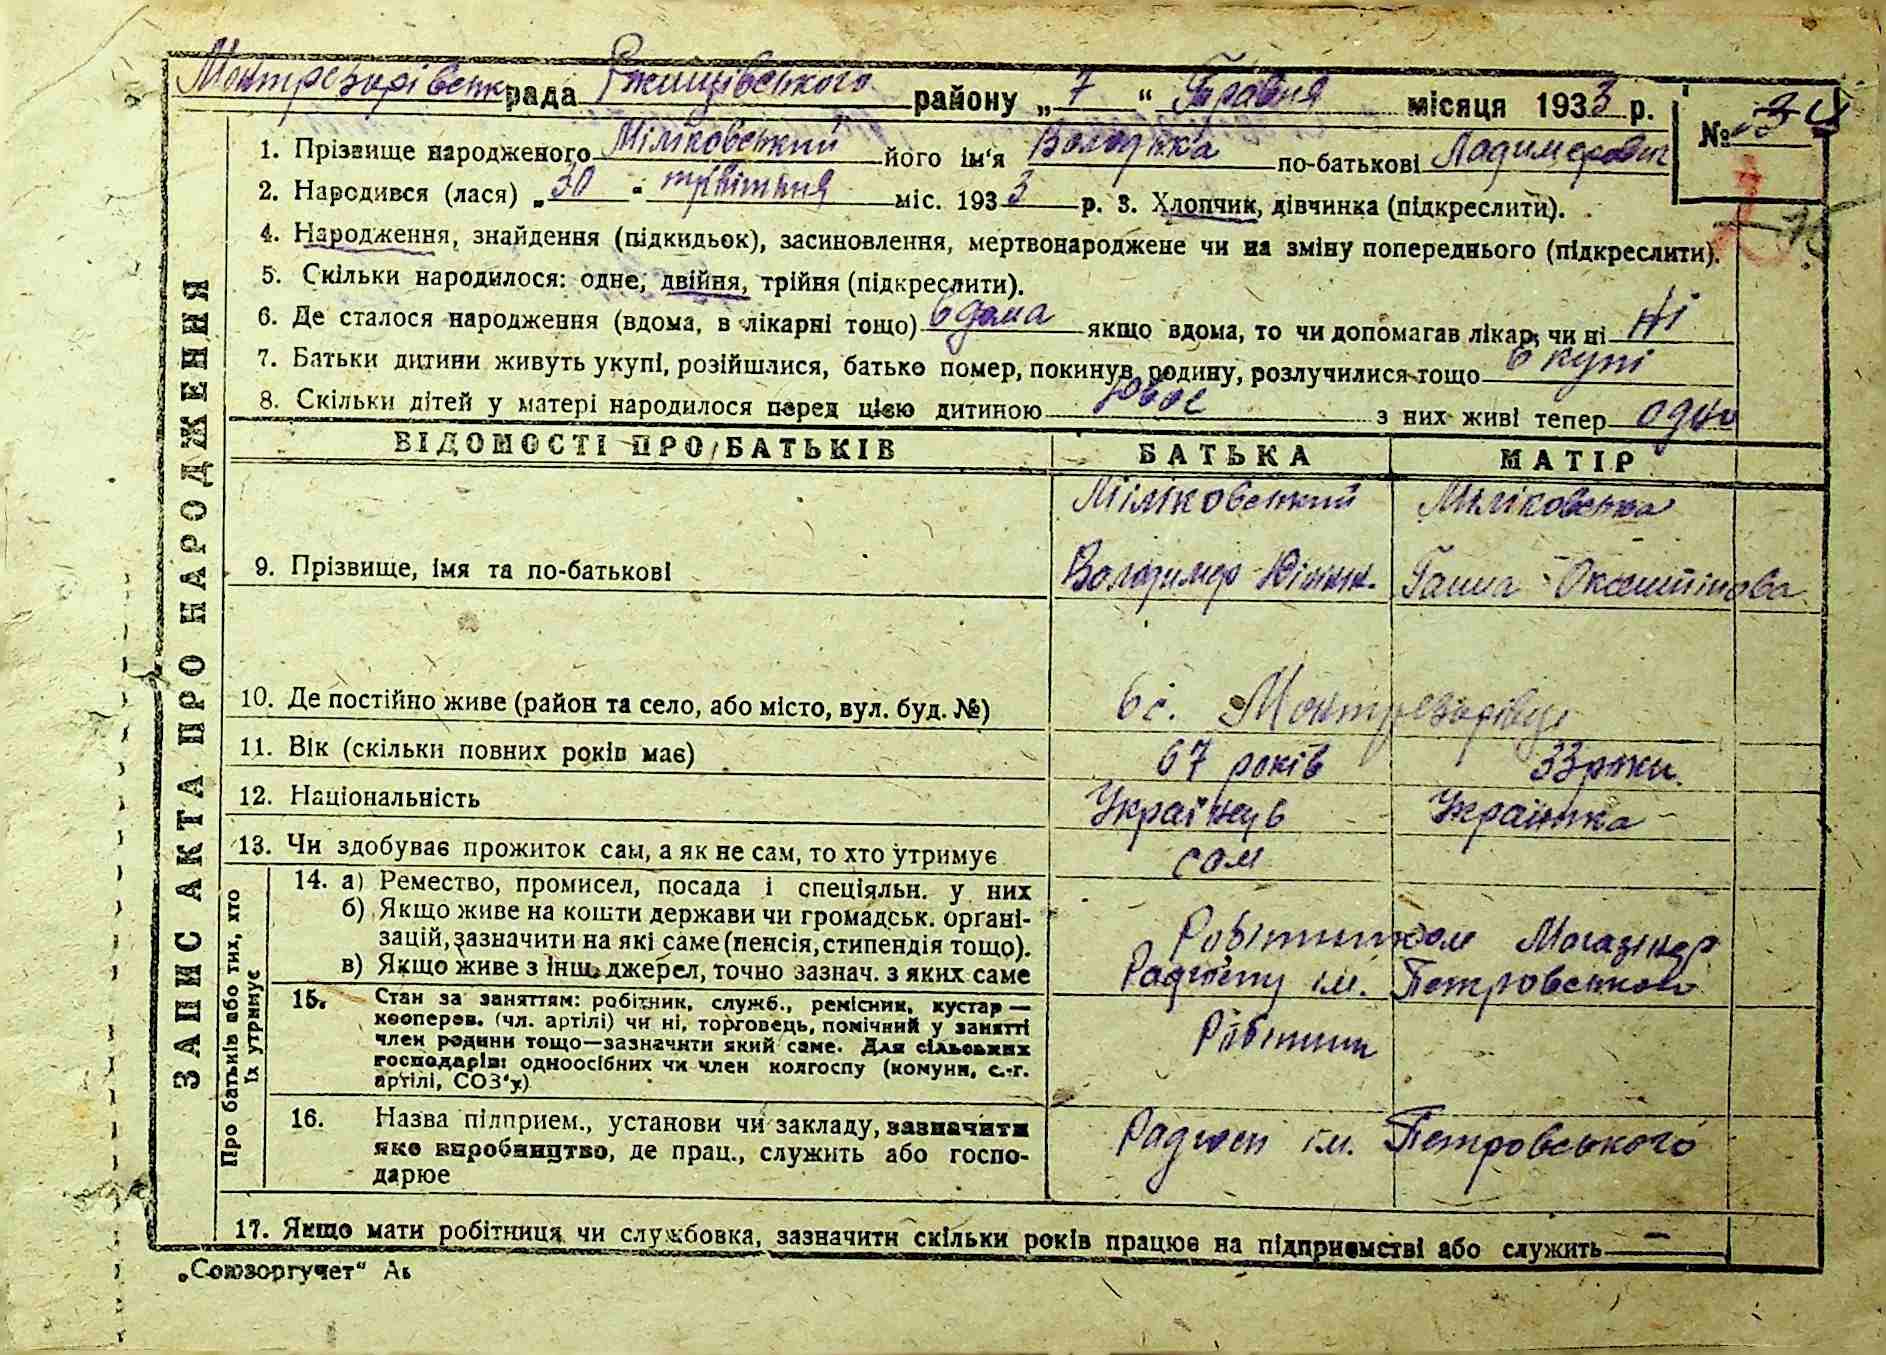 рада Ржищівського району „ 7 “ Травня місяця 1933 р.
№
1. Прізвище народженого Міліковський його ім'я Володька по-батькові Ладимерович
2. Народився (лася) „ 30 “ квітня міс. 1933 р. 3. Хлопчик, дівчинка (підкреслити).
4. Народження, знайдення (підкидьок), засиновлення, мертвонароджене чи на зміну попереднього (підкреслити).
5. Скільки народилося: одне, двійня, трійня (підкреслити).
6. Де сталося народження (вдома, в лікарні тощо) вдома якщо вдома, то чи допомагав лікар, чи ні Ні
7. Батьки дитини живуть укупі, розійшлися, батько помер, покинув родину, розлучилися тощо в купі
8. Скільки дітей у матері народилося перед цією дитиною двоє з них живі тепер одно
ВІДОМОСТІ ПРО БАТЬКІВ БАТЬКА МАТІР
Міліковський Міліковська
9. Прізвище, імя та по-батькові Володимер Ганна
10. Де постійно живе (район та село, або місто, вул. буд. №) в с. Монтрезорівці
11. Вік (скільки повних років має) 67 років 33 роки.
12. Національність Українець Українка
13. Чи здобуває прожиток сам, а як не сам, то хто утримує сам
14. а) Ремество, промисел, посада і спеціяльн. у них
б) Якщо живе на кошти держави чи громадськ. органі-
зацій, зазначити на які саме (пенсія, стипендія тощо). Робітником Магазінер
в) Якщо живе з інш. джерел, точно зазнач. з яких саме Радгоспу ім. Петровського
15. Стан за заняттям: робітник, служб., ремісник, кустар —
кооперов. (чл. артілі) чи ні, торговець, помічний у занятті
член родини тощо—зазначити який саме. Для сільських Робітник
господарів: одноосібних чи член колгоспу (комуни, с.-г.
артілі, СОЗ'у)
16. Назва підприєм., установи чи закладу, зазначити
яке виробництво, де прац., служить або госпо- Радгосп ім. Петровського
дарює
17. Якщо мати робітниця чи службовка, зазначити скільки років працює на підприємстві або служить —
„Союзоргучет“
ЗАПИС АКТА ПРО НАРОДЖЕННЯ
Про батьків або тих, хто
їх утримує